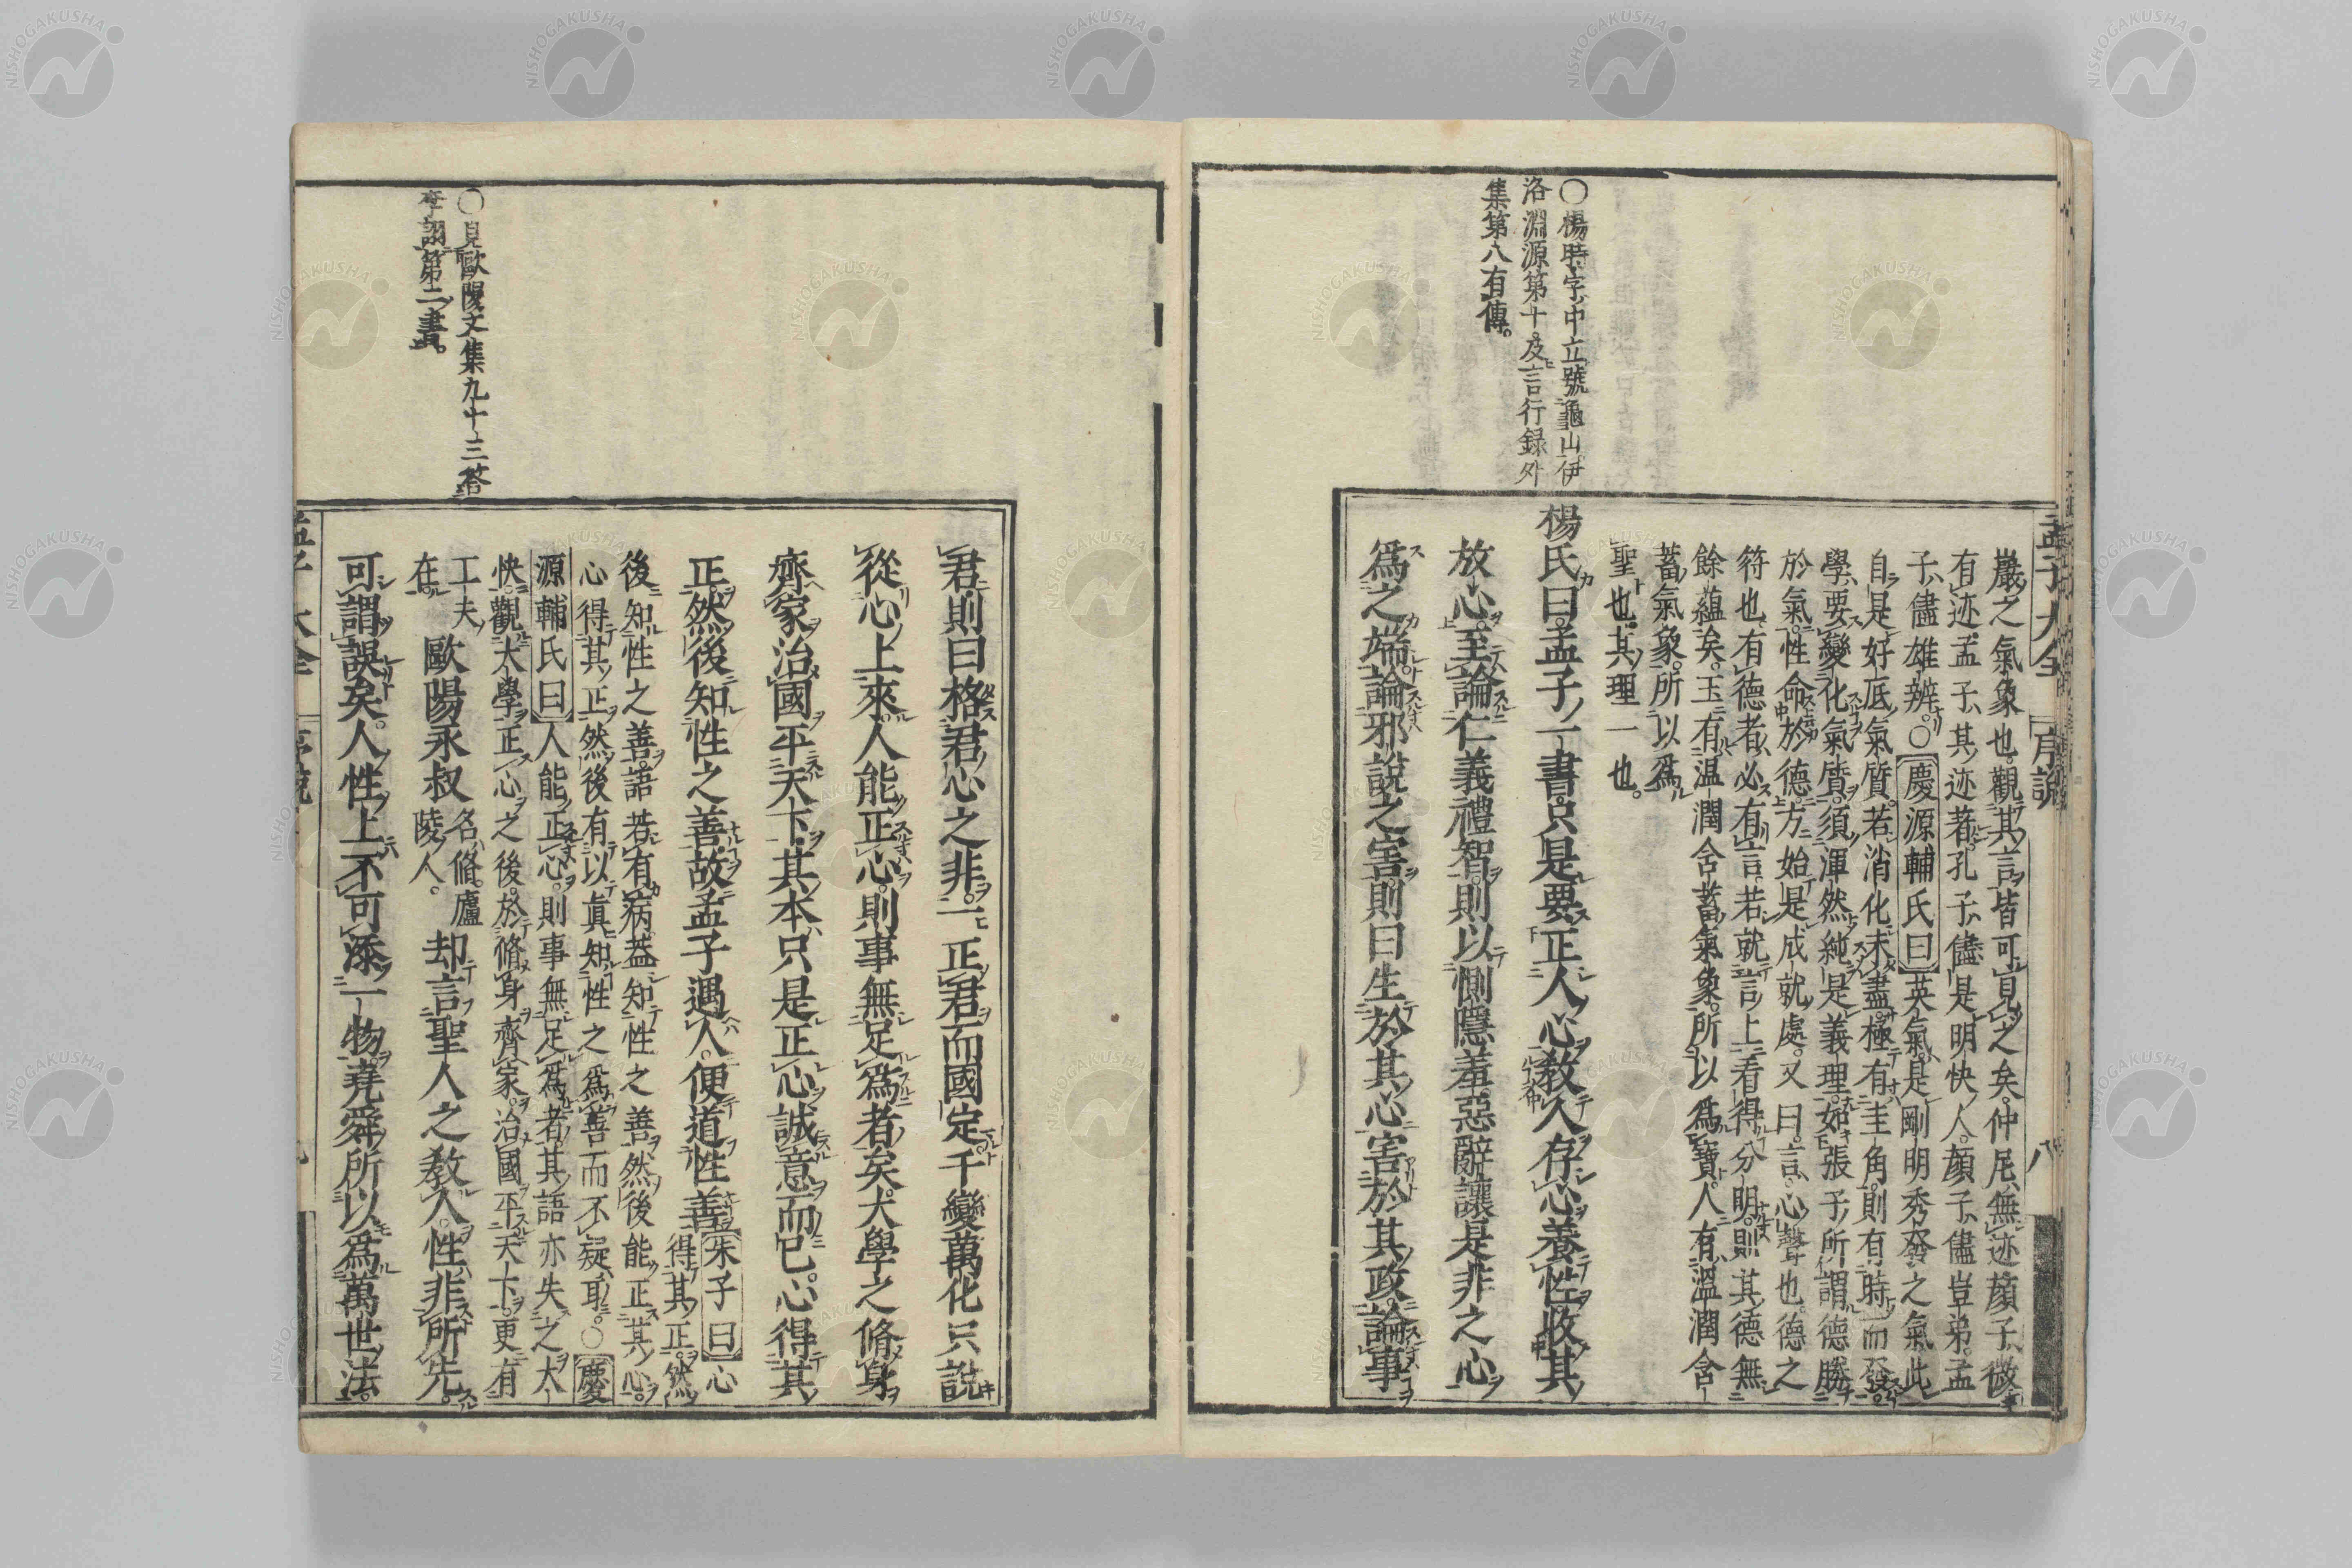 孟子大全
序說
八
○楊時字中立號龜山伊
洛淵源第十及言行録外
集第八有傳。
巖之氣象也。觀其言皆可見之矣。仲尼無迹顔子微
有迹孟子其迹著。孔子儘是明快人。顔子儘豈弟。孟
子儘雄辨。○慶源輔氏曰英氣是剛明秀發之氣此
自是好底氣質。若消化未盡極有圭角。則有時而發。
學要變化氣質。須渾然純是義理。如張子所謂德勝
於氣。性命於德。方始是成就處。又曰。言心聲也。德之
符也。有德者必有言。若就言上看得分明。則其德無
餘蘊矣。玉有温潤含蓄氣象。所以爲寶。人有溫潤含
蓄氣象。所以爲
聖也。其理一也。
楊氏曰。孟子一書。只是要正人心教人存心養性收其
放心。至論仁義禮智。則以惻隱羞惡辭讓是非之心
爲之端。論邪說之害。則曰生於其心害於其政。論事
○見歐陽文集九十三答
李詡第二書。
君則曰格君心之非。一正君而國定千變萬化只說
從心上來人能正心。則事無足爲者矣大學之脩身
齊家治國平天下其本只是正心誠意而已。心得其
正然後知性之善故孟子遇人。便道性善朱子曰心
得其正。然
後知性之善。語若有病。蓋知性之善然後能正其心。
心得其正然後有以眞知性之爲善而不疑耳。○慶
源輔氏曰人能正心。則事無足爲者。其語亦失之太
快。觀大學正心之後。於脩身齊家。治國平天下。更有
工夫
在。
歐陽永叔名脩。廬
陵人。却言聖人之教人。性非所先。
可謂誤矣。人性上不可添一物堯舜所以爲萬世法。